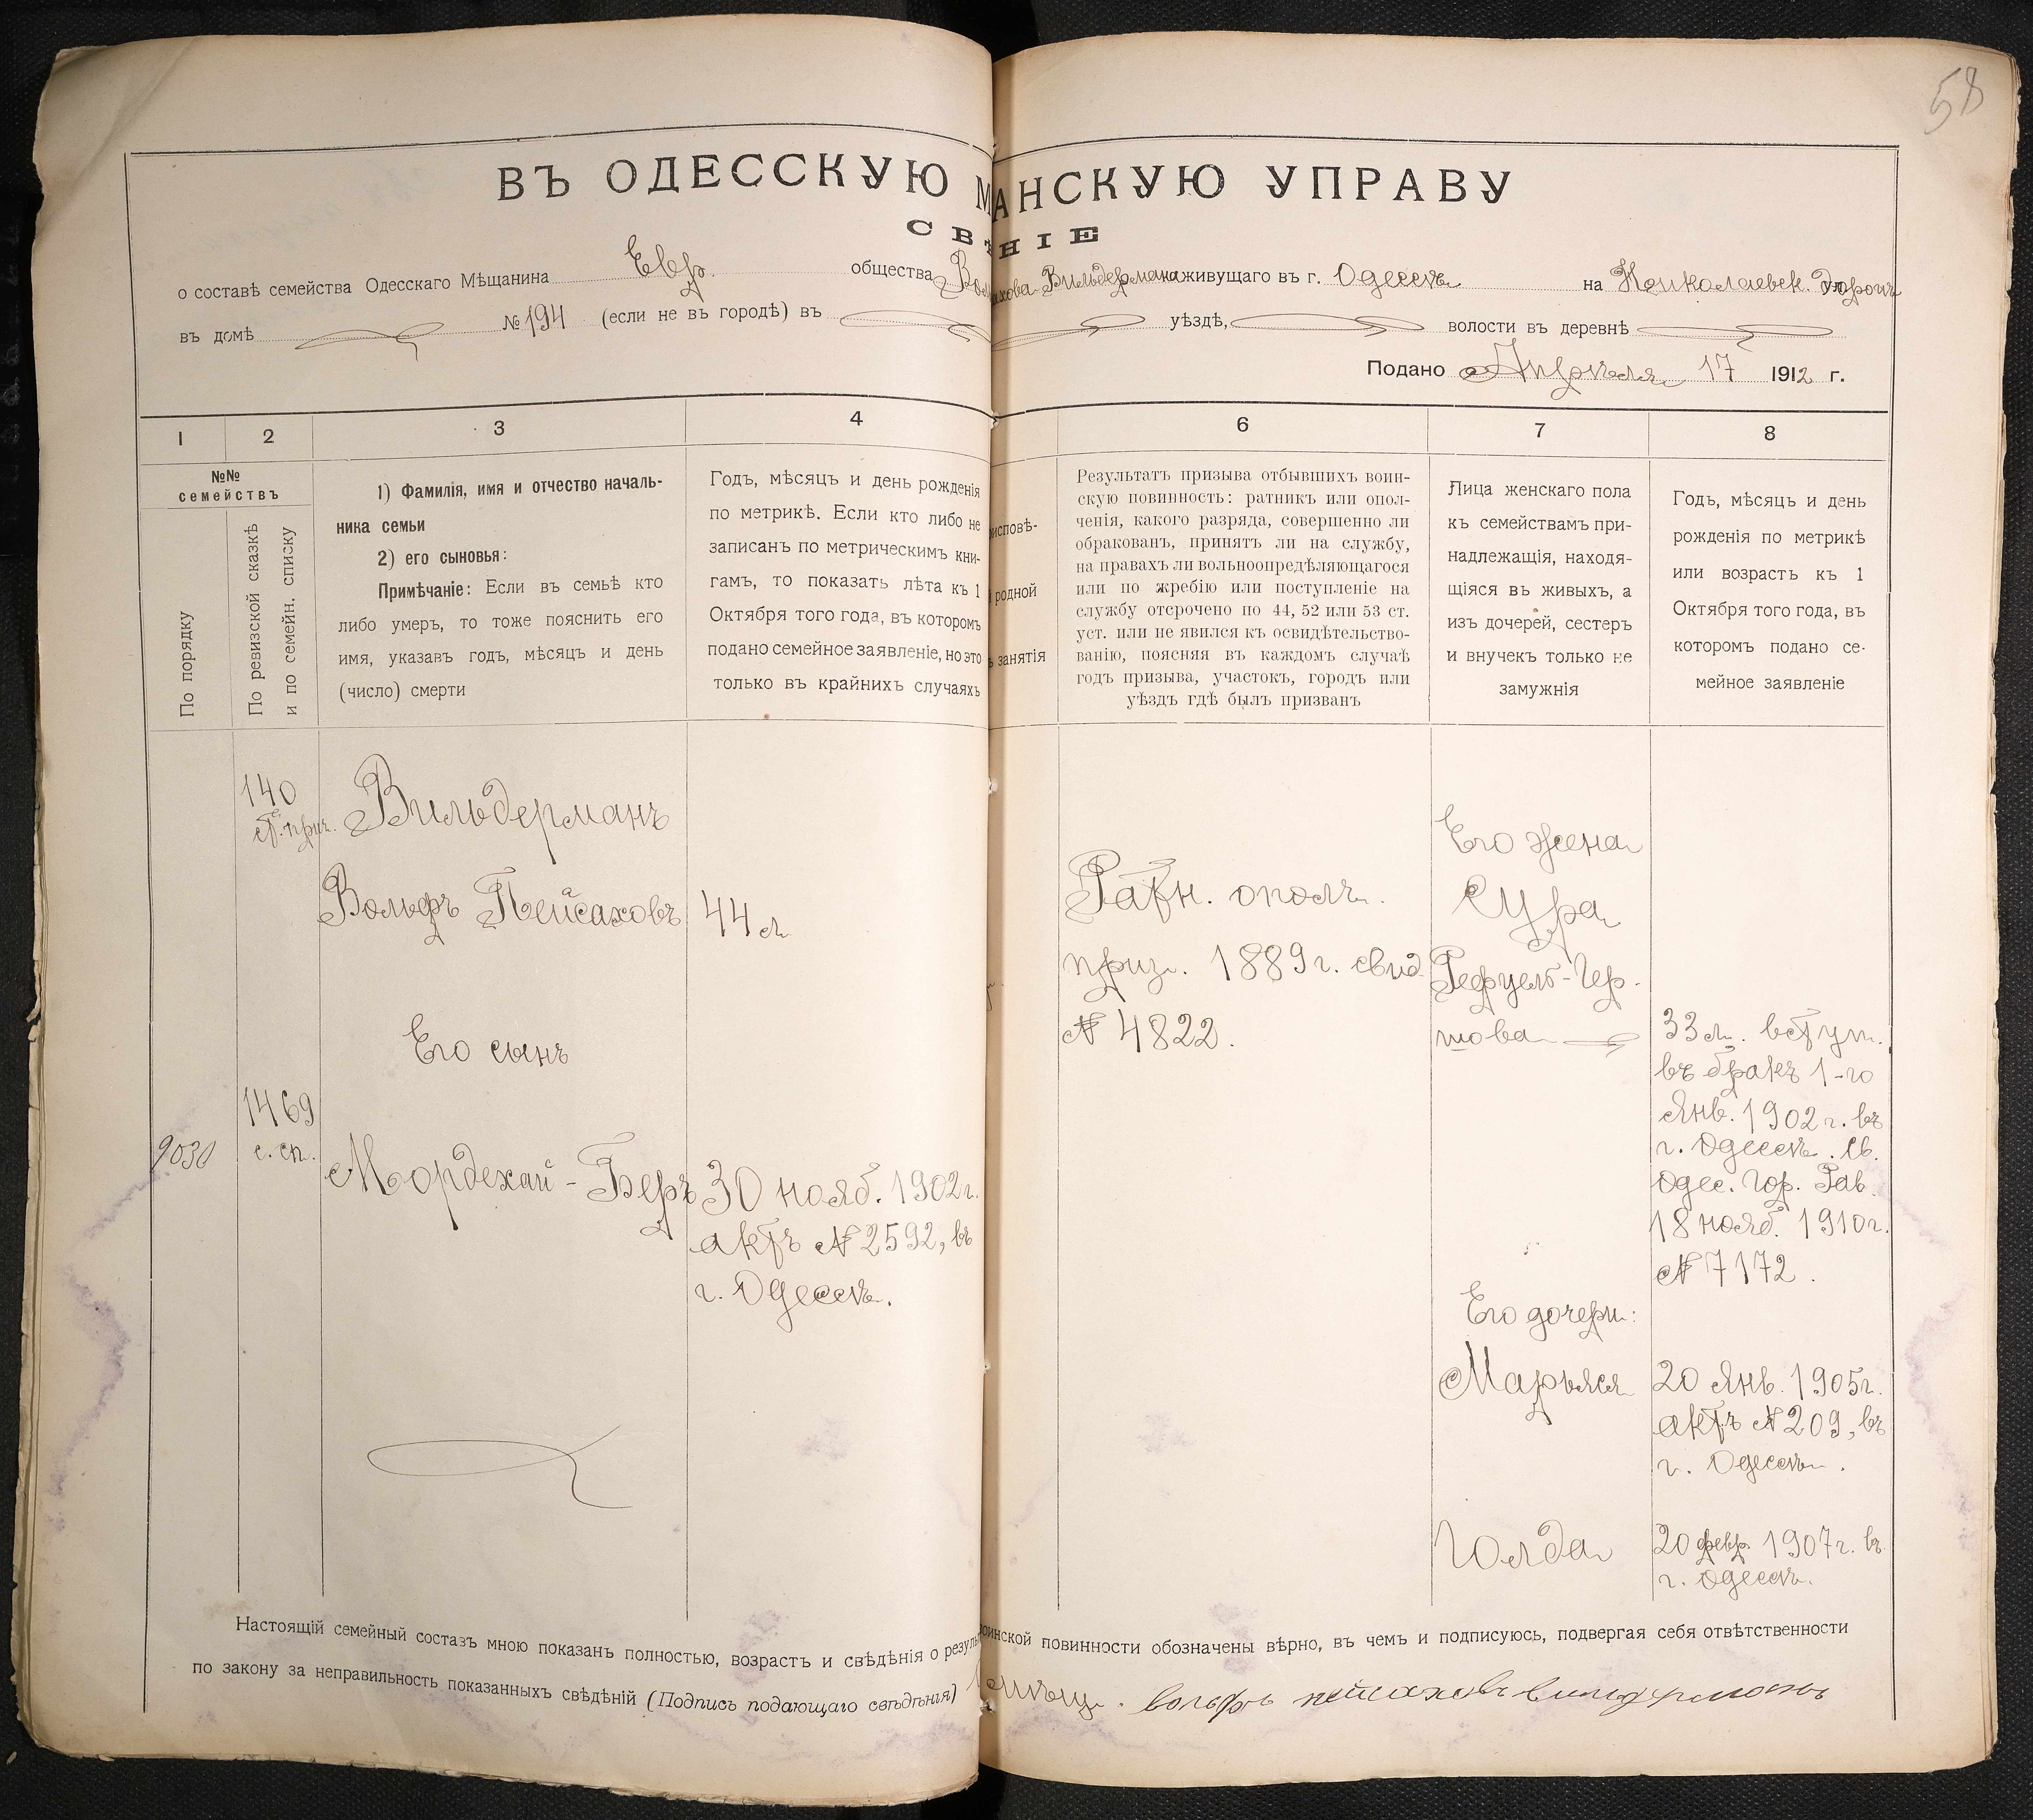 58
ВЪ ОДЕССКУЮ М АНСКУЮ УПРАВУ
СВ НІЕ
о составѣ семейства Одесскаго Мѣщанина Евр. общества Вол хова Вильдермана живущаго въ г. Одессѣ на Николаевск. Дорогѣ ул.
въ домѣ № 194 (если не въ городѣ) въ уѣздѣ, волости въ деревнѣ
Подано Апрѣля 17 1912 г.
1 2 3 4 6 7 8
№№
семействъ
По порядку
По ревизской сказкѣ
и по семейн. списку
1) Фамилія, имя и отчество началь-
ника семьи
2) его сыновья:
Примѣчаніе: Если въ семьѣ кто
либо умеръ, то тоже пояснить его
имя, указавъ годъ, мѣсяцъ и день
(число) смерти
Годъ, мѣсяцъ и день рожденія
по метрикѣ. Если кто либо не
записанъ по метрическимъ кни-
гамъ, то показать лѣта къ 1
Октября того года, въ которомъ
подано семейное заявленіе, но это
только въ крайнихъ случаяхъ
исповѣ-
родной
занятія
Результатъ призыва отбывшихъ воин-
скую повинность: ратникъ или опол-
ченія, какого разряда, совершенно ли
обракованъ, принятъ ли на службу,
на правахъ ли вольноопредѣляющагося
или по жребію или поступленіе на
службу отсрочено по 44, 52 или 53 ст.
уст. или не явился къ освидѣтельство-
ванію, поясняя въ каждомъ случаѣ
годъ призыва, участокъ, городъ или
уѣздъ гдѣ былъ призванъ
Лица женскаго пола
къ семействамъ при-
надлежащія, находя-
щіяся въ живыхъ, а
изъ дочерей, сестеръ
и внучекъ только не
замужнія
Годъ, мѣсяцъ и день
рожденія по метрикѣ
или возрастъ къ 1
Октября того года, въ
которомъ подано се-
мейное заявленіе
140
Вильдерманъ
Вольфъ Пейсаховъ
44 л
Его сынъ
1469
с. сп.
9030
Мордехай-Беръ
30 нояб. 1902 г.
актъ № 2592, въ
г. Одессѣ.
Ратн. ополч.
приз. 1889 г. свид.
№ 4822.
Его жена
Сура
Рефуель-Гер-
шова
33 л. вступ.
въ бракъ 1-го
Янв. 1902 г. въ
г. Одессѣ. Св.
Одес. Гор. Рав.
18 нояб. 1910 г.
№ 7172.
Его дочери:
Марьяся
20 Янв. 1905 г.
актъ № 209, въ
г. Одессѣ.
Голда
20 февр. 1907 г. въ
г. Одессѣ.
Настоящій семейный составъ мною показанъ полностью, возрастъ и свѣдѣнія о резуль воинской повинности обозначены вѣрно, въ чемъ и подписуюсь, подвергая себя отвѣтственности
по закону за неправильность показанныхъ свѣдѣній (Подпись подающаго свѣдѣнія) вольфъ пейсаховъ вильдерманъ